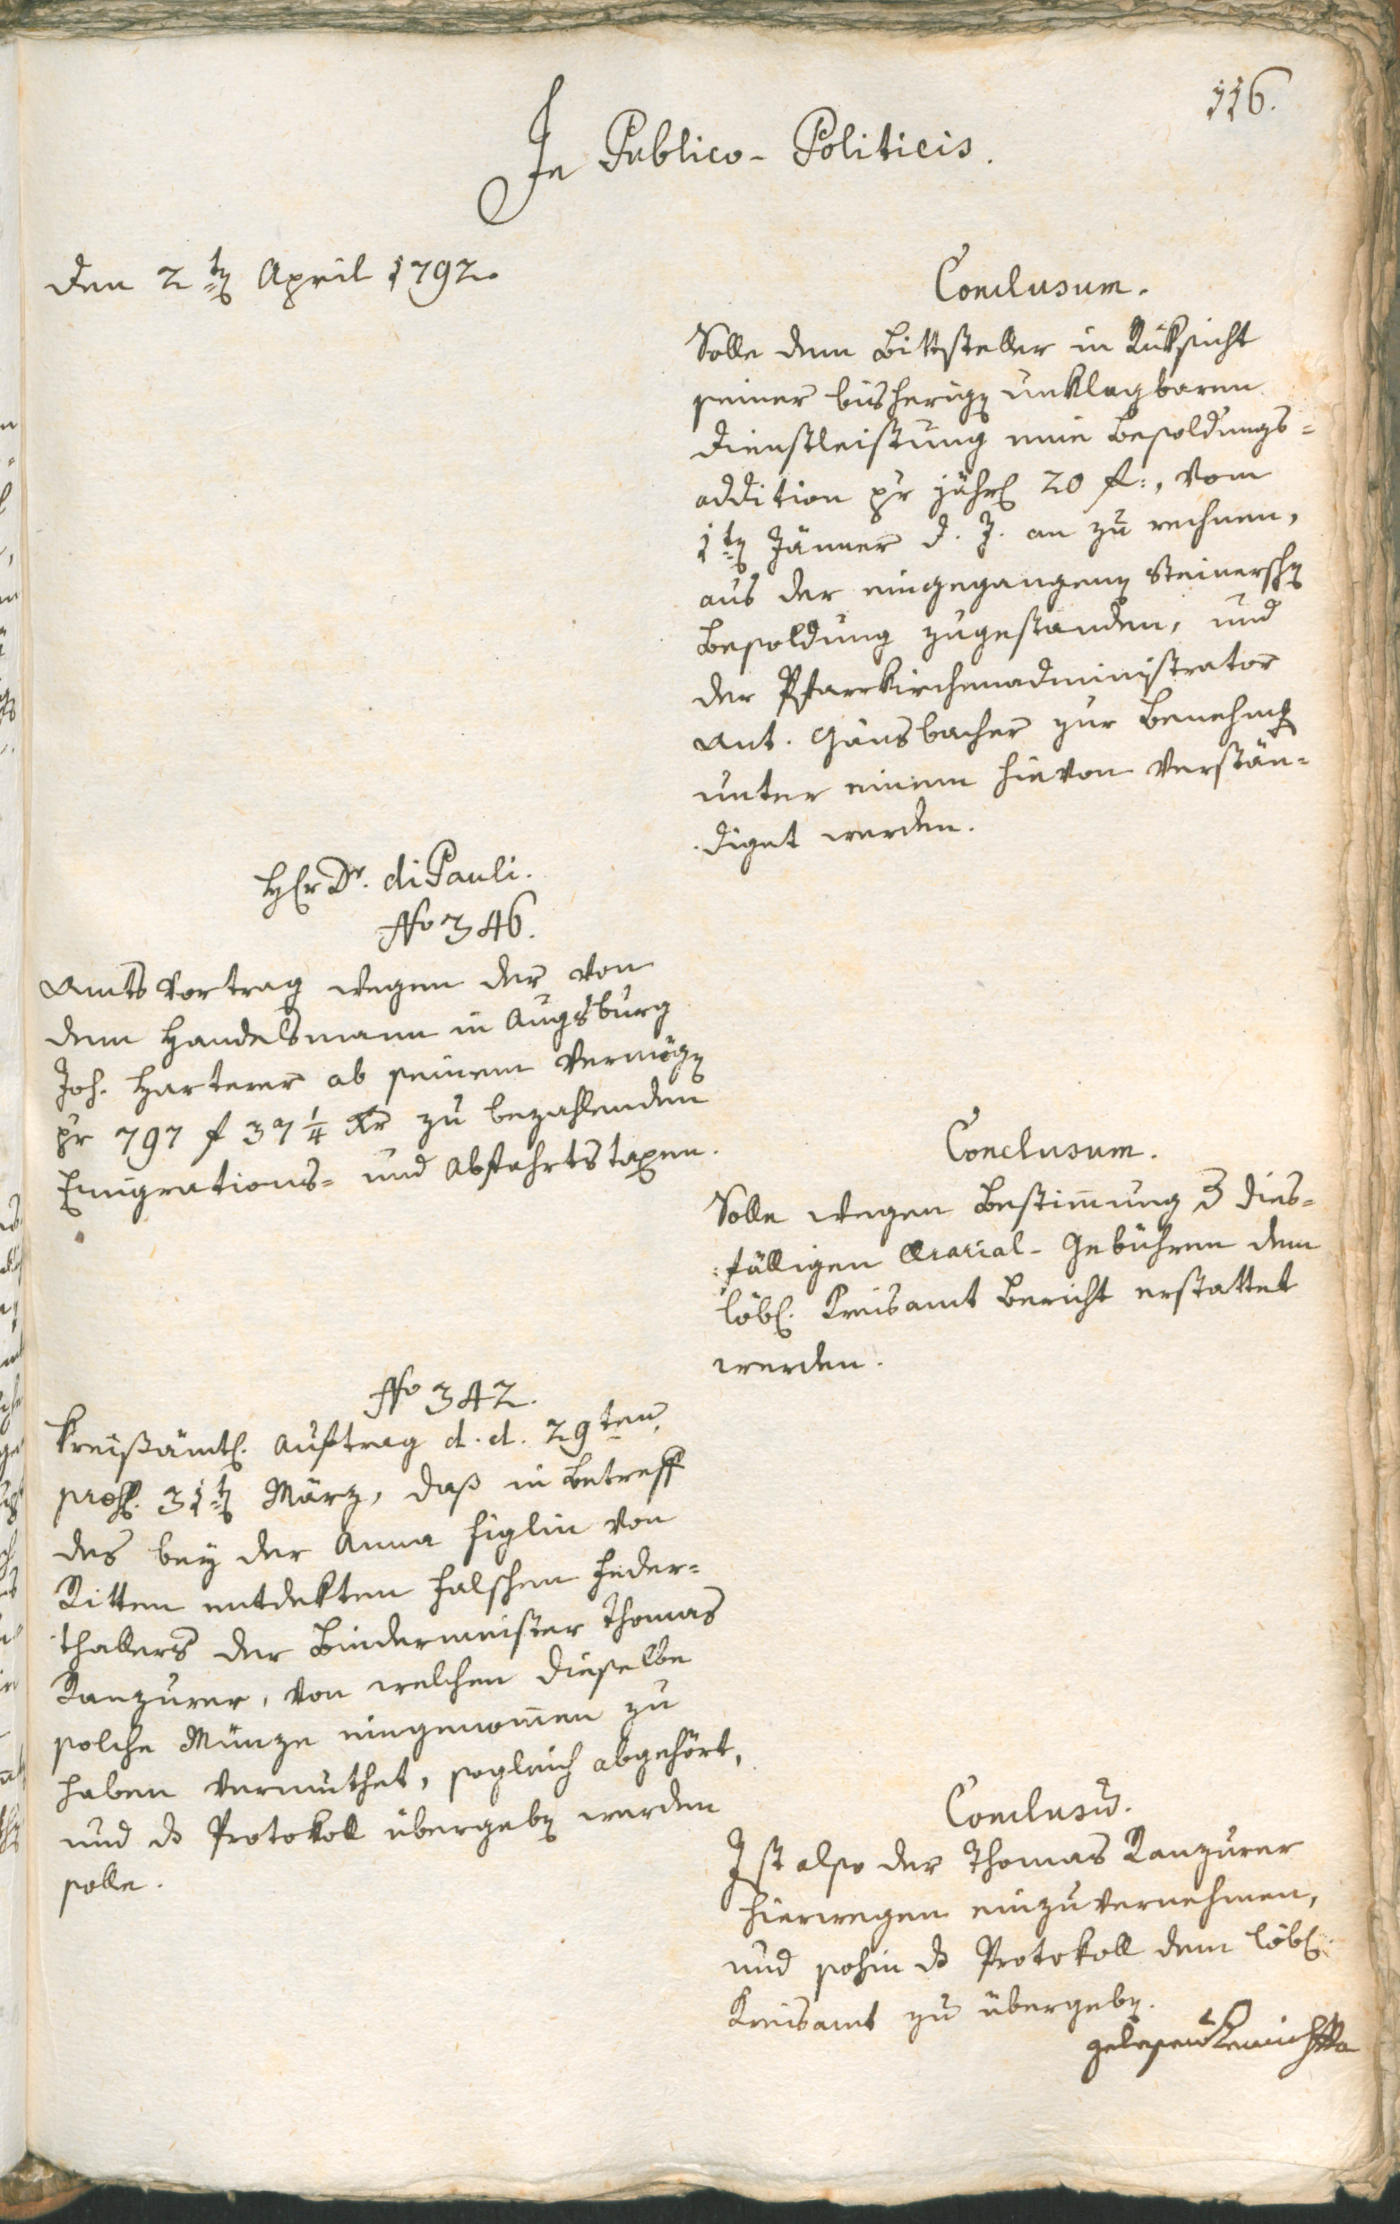 116.
In Publico-Politicis.
Den 2ten April 1792.
Conclusum.
Solle dem Bittsteller in Rüksicht
seiner bisherigen unklagbaren
Dienstleistung eine Besoldungs=
addition pr jährl. 20 f:, vom
1ten Jänner d. J. an zu rechnen,
aus der eingegangenen Steinerschen
Besoldung zugestanden, und
der Pfarrkirchenadministrator
Ant. Gänsbacher zur Benehmung
unter einem hievon verstän=
diget werden.
Herr Dr. di Pauli.
No 346.
Amtsvortrag wegen der von
dem Handelsmann in Augsburg
Joh. Harterer ab seinem Vermögen
pr 797 f 37 1/4 Kr zu bezahlenden
Emigrations= und Abfahrtstaxen.
Conclusum.
Solle wegen Bestim̄ung der dies=
fälligen Aerarial-Gebühren dem
löbl. Kreisamt Bericht erstattet
werden.
No 342.
Kreißämtl. Auftrag d. d. 29ten,
praes. 31ten März, daß in Betreff
des bey der Anna Figlin von
Ritten entdekten falschen Feder=
thallers der Bindermeister Thomas
Ranzurer, von welchen dieselbe
solche Münze eingenom̄en zu
haben vermuthet, sogleich abgehört,
und das Protokoll übergeben werden
solle.
Conclusum.
Ist also der Thomas Ranzurer
hierwegen einzuvernehmen,
und sohin das Protokoll dem löbl.
Kreisamt zu übergeben.
gelesen